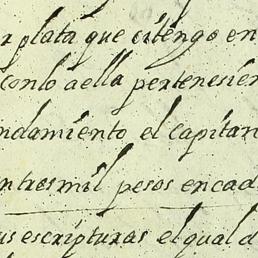 r plata que citengo en
conlo aella pertenesien
ndamiento el capitan
ntresmil pesos encad
us escripturas elqual d